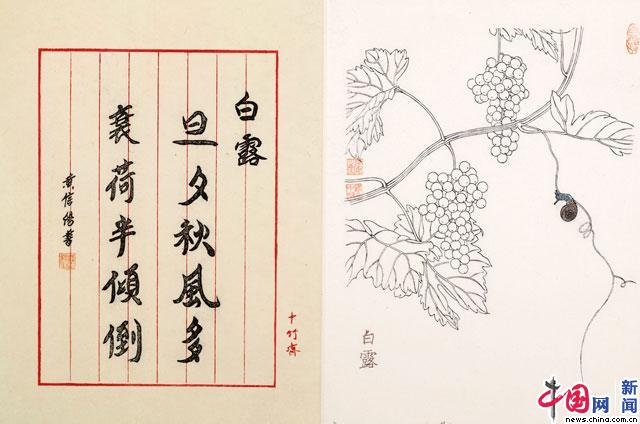 白露
旦夕秋風多
衰荷半傾倒
十竹齋
白露
中国网 新闻
news.china.com.cn